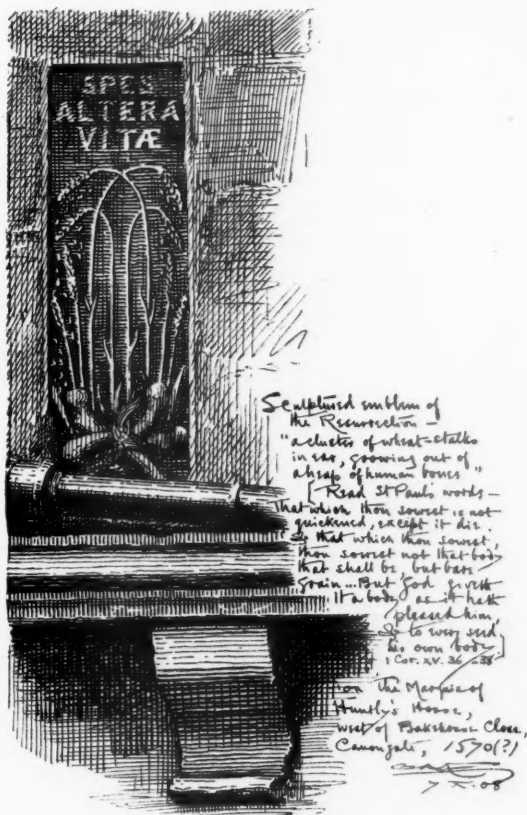 SPES
ALTERA
VITÆ
Sculptured emblem of
the Resurrection —
"a cluster of wheat-stalks
in ear, growing out of
a heap of human bones"
[Read St Paul's words —
That which thou sowest is not
quickened, except it die.
& that which thou sowest,
thou sowest not that body
that shall be, but bare
grain... But God giveth
it a body as it hath
pleased him,
& to every seed
his own body]
1 Cor. XV. 36–38
on the Marquis of
Huntly's House,
west of Bakehouse Close,
Canongate, 1570(?)
7 X. 08